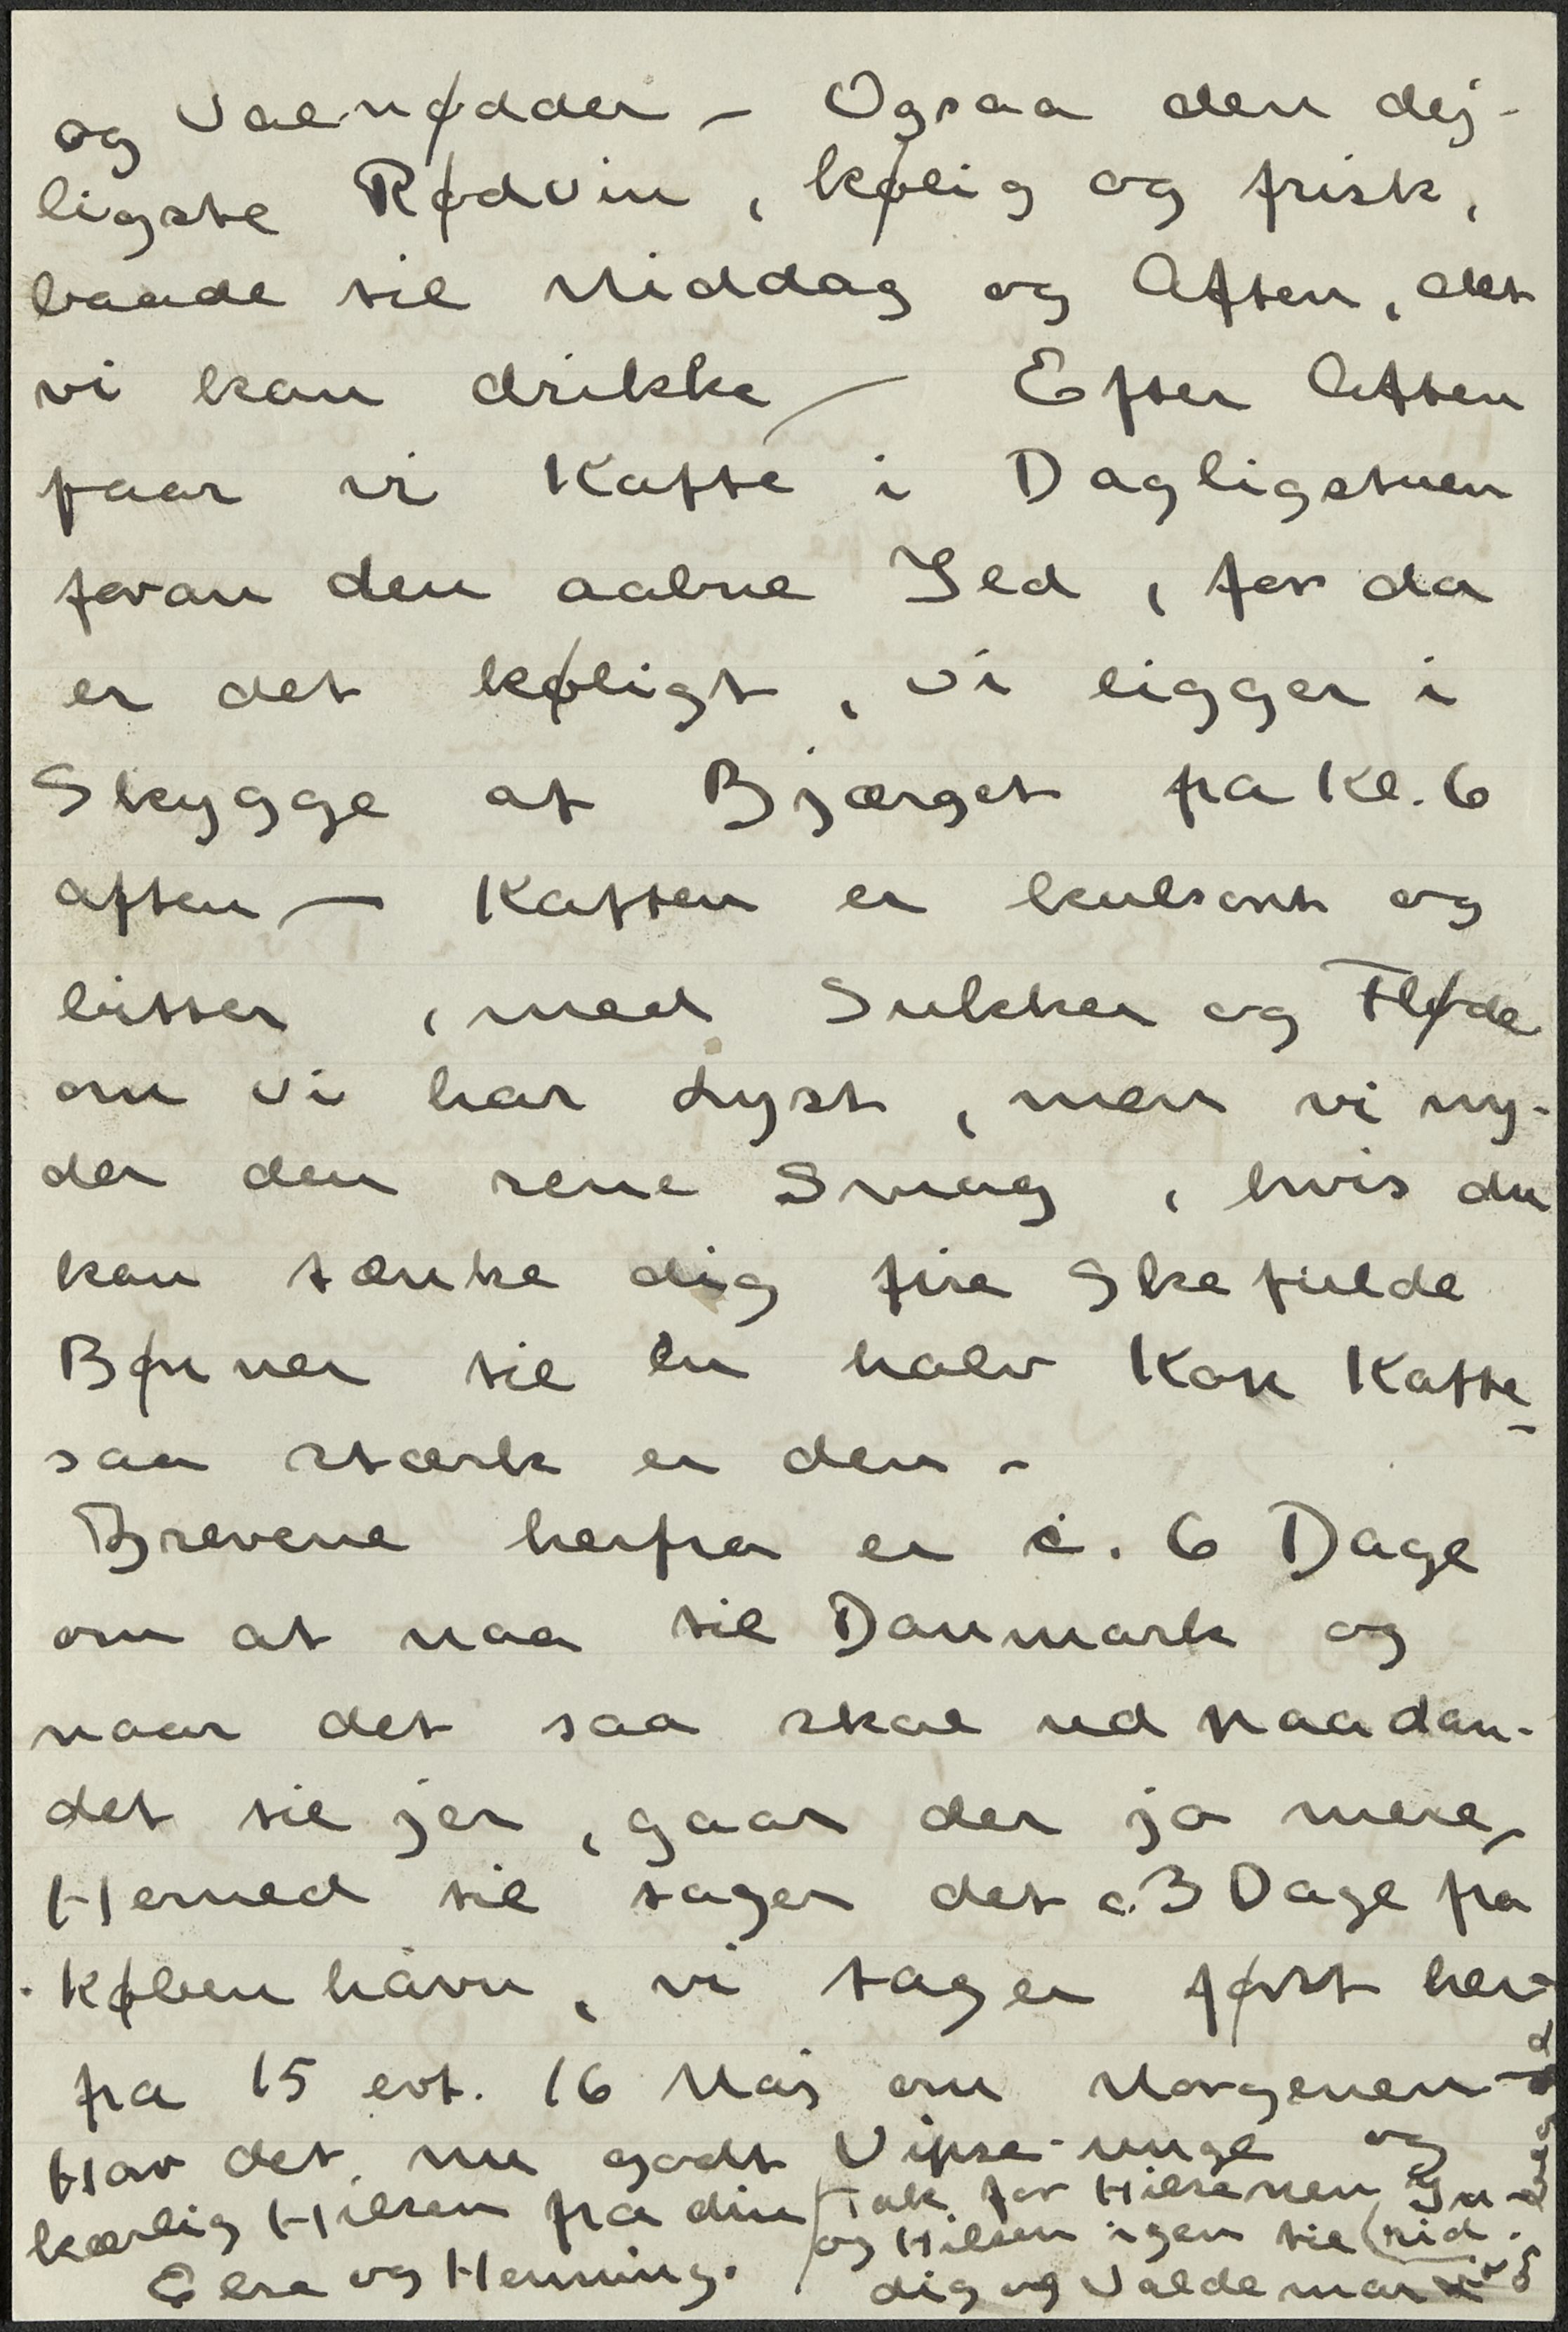 og Valnødder – Ogsaa den dej-
ligste Rødvin, kølig og frisk,
baade til Middag og Aften, det
vi kan drikke – Efter Aften
faar vi Kaffe i Dagligstuen
foran den aabne Ild, for da
er det køligt, vi ligger i
Skygge af Bjærget fra Kl. 6
aften – Kaffen er kulsort og
bitter, med Sukker og Fløde
om vi har Lyst, men vi ny-
der den rene Smag, hvis du
kan tænke dig fire Skefulde
Bønner til en halv Kop Kaffe –
saa stærk er den –
Brevene herfra er c. 6 Dage
om at naa til Danmark og
naar det saa skal ud paa Lan-
det til jer, gaar der jo mere –
Herned til tager det c. 3 Dage fra
København, vi tager først her-
fra 15 evt. 16 Maj om Morgenen –
Hav det nu godt Vipse-unge og
kærlig Hilsen fra din
Elsa og Henning.
Tak for Hilsenen
og Hilsen igen til
dig og Valdemar